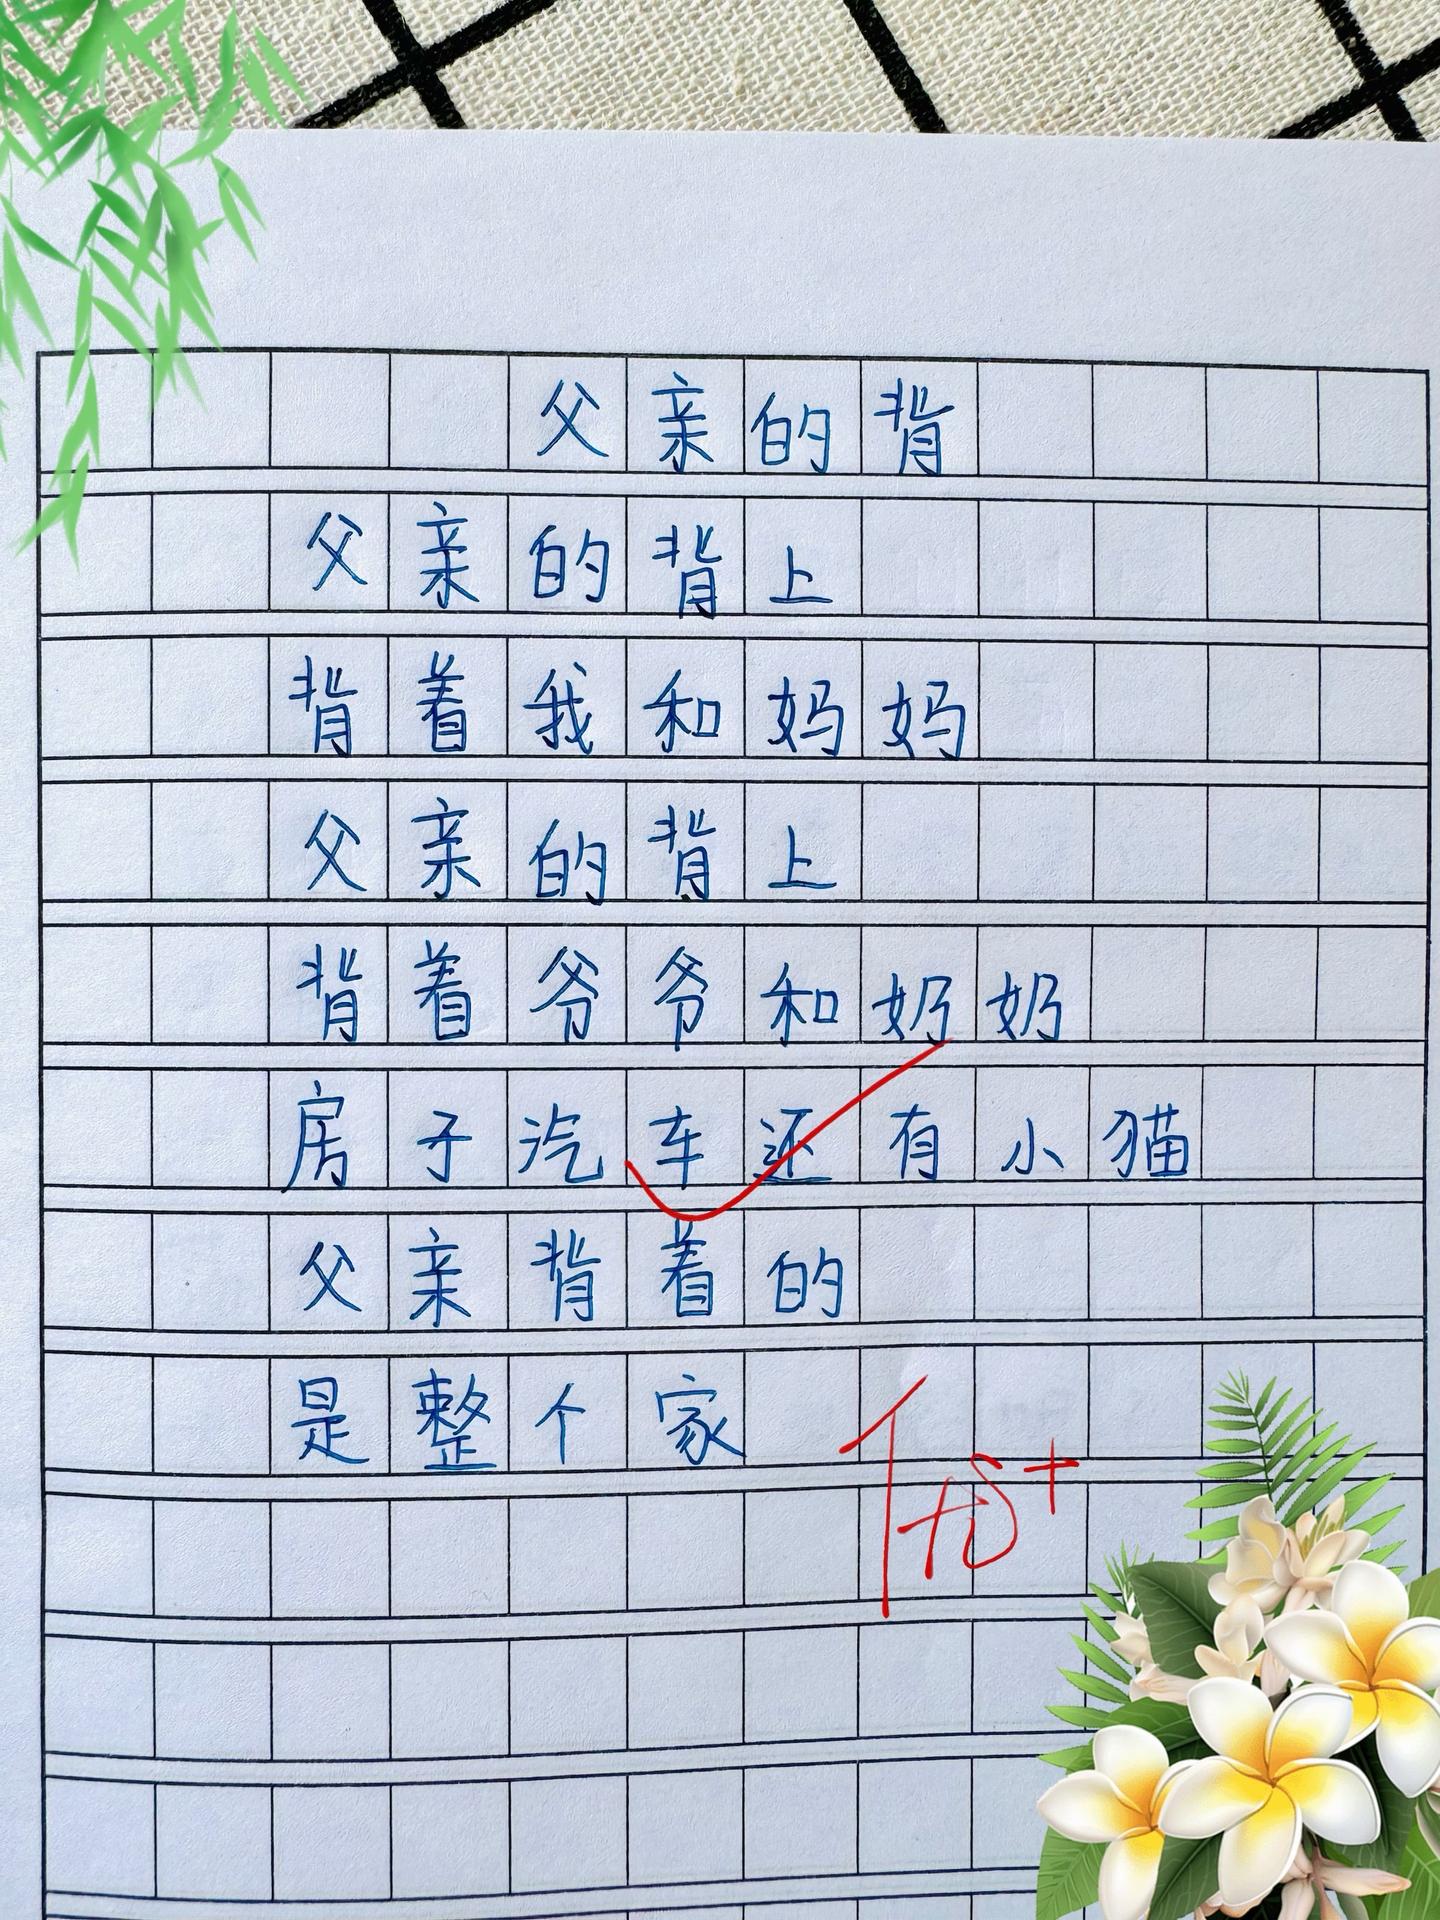 父亲的背
父亲的背上
背着我和妈妈
父亲的背上
背着爷爷和奶奶
房子汽车还有小猫
父亲背着的
是整个家
优+